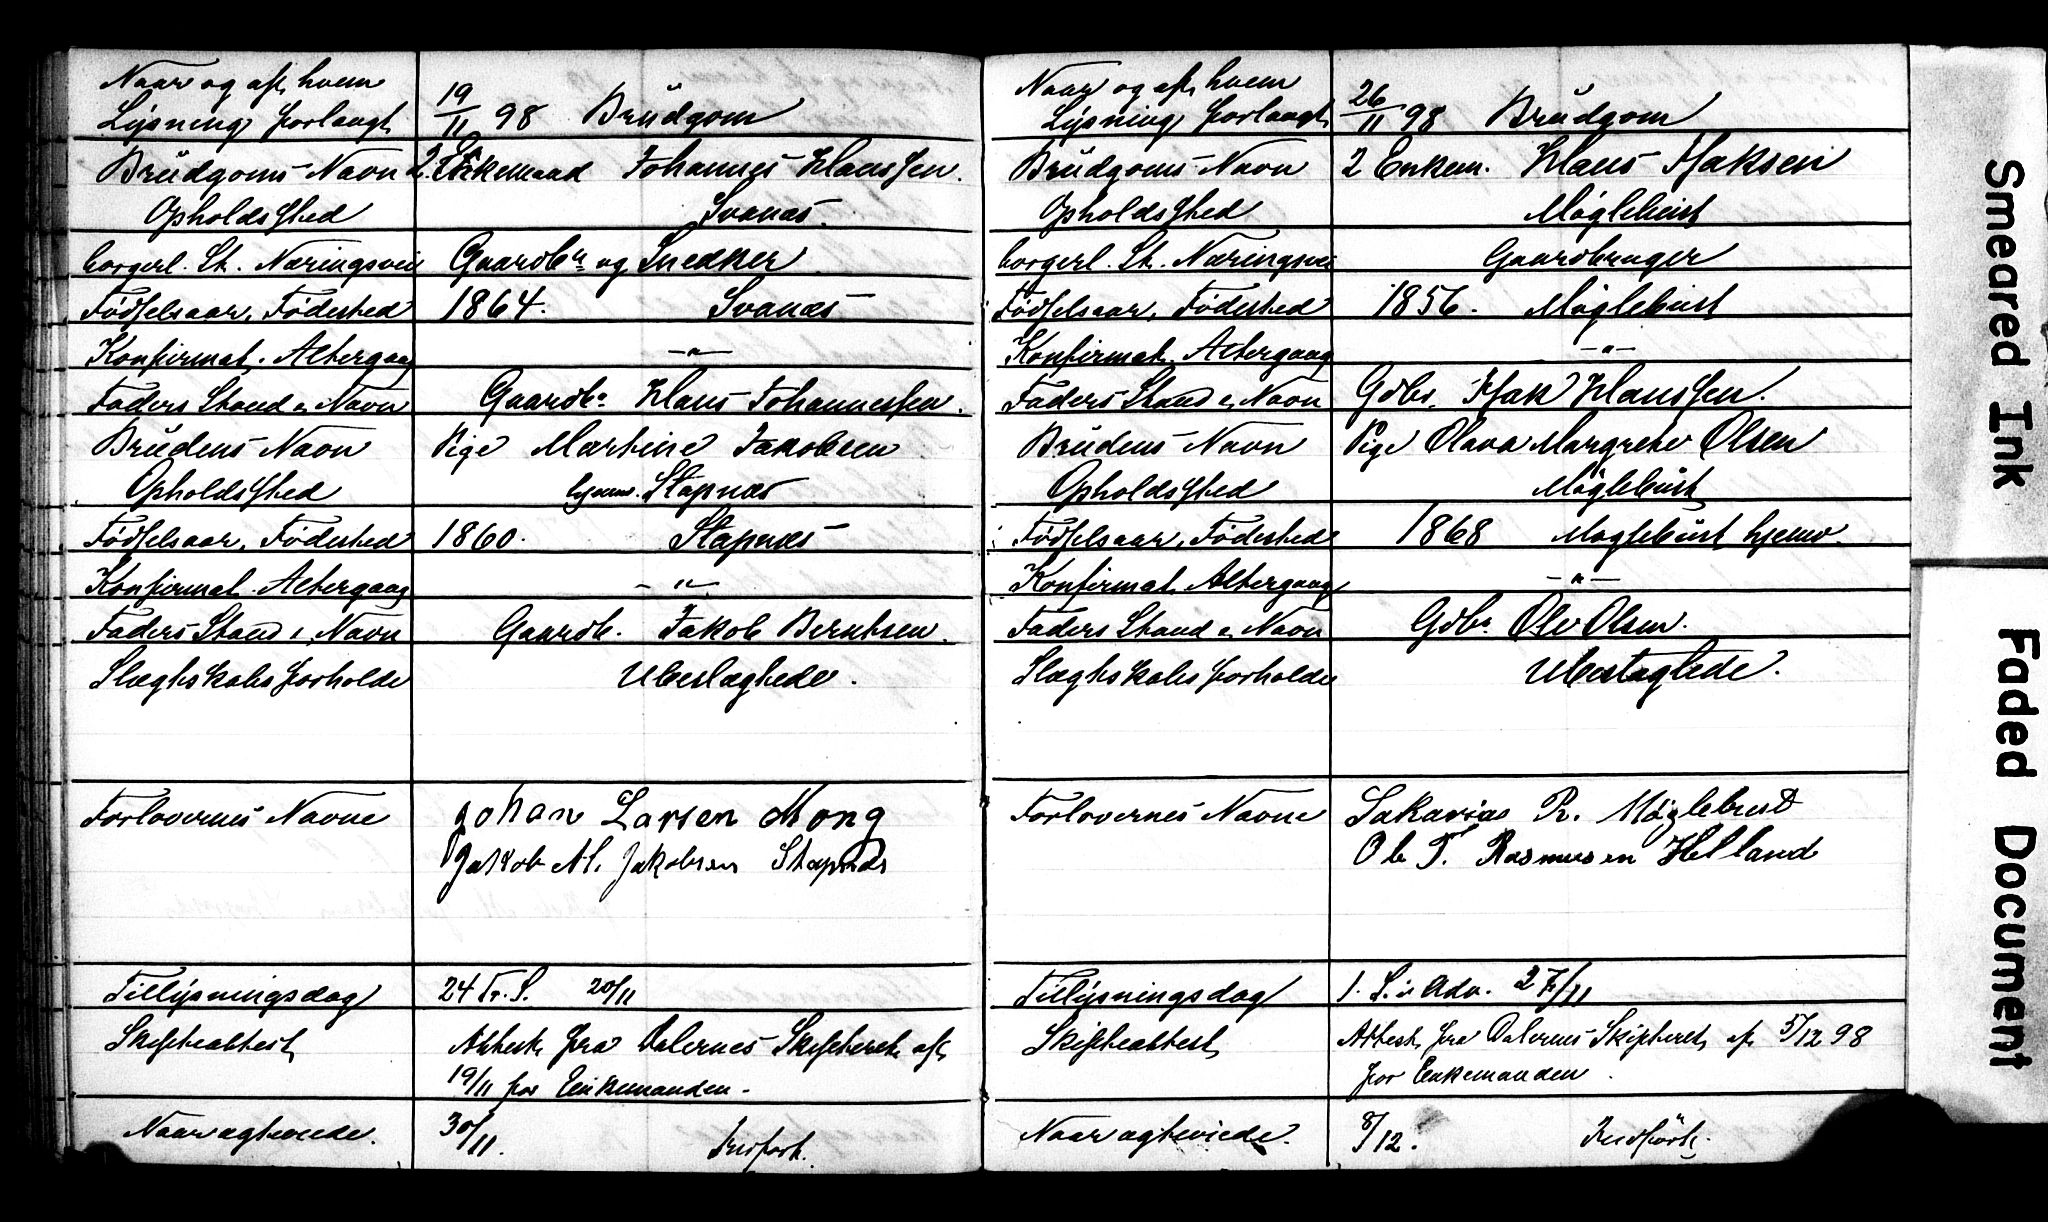 Naar og af hvem
Lysning forlangt 19/11 98 Brudgom
Brudgoms Navn 2. Enkemand Johannes Klaussen.
Opholdssted Svanæs.
borgerl. St. Næringsvei Gaardbr og Snedker
Fødselsaar, Fødested 1864. Svanæs
Konfirmat. Altergang -"-
Faders Stand & Navn Gaardbr Klaus Johannessen.
Brudens Navn Pige Martine Jakobsen
Opholdssted hjemv. Stapnæs
Fødselsaar, Fødested 1860. Stapnæs
Konfirmat. Altergang -"-
Faders Stand & Navn Gaardb. Jakob Berntsen.
Slægtskabsforholde Ubeslægtede.
Forlovernes Navne Johan Larsen Mong
Jakob M. Jakobsen Stapnæs
Tillysningsdag 24 Tr. S. 20/11
Skifteattest Attest fra Dalernes Skifteret af
19/11 for Enkemanden.
Naar ægteviede. 30/11. Indført.
Naar og af hvem
Lysning forlangt 26/11 98 Brudgom
Brudgoms Navn 2 Enkem. Klaus Isaksen
Opholdssted Møglebust
borgerl. St. Næringsvei Gaardbruger
Fødselsaar, Fødested 1856. Møglebust
Konfirmat. Altergang -"-
Faders Stand & Navn Gdbr. Isak Klaussen.
Brudens Navn Pige Olava Margrete Olsen
Opholdssted Møglebust
Fødselsaar, Fødested 1868 Møglebust hjemv.
Konfirmat. Altergang -"-
Faders Stand & Navn Gdbr Ole Olsen.
Slægtskabsforholde Ubeslægtede.
Forlovernes Navne Sakarias R. Møglebust
Ole T. Rasmusen Helland
Tillysningsdag 1. S. i Adv. 27/11
Skifteattest Attest fra Dalernes Skifteret af 5/12 98
for Enkemanden.
Naar ægteviede. 8/12. Indført.
Smeared Ink
Faded Document